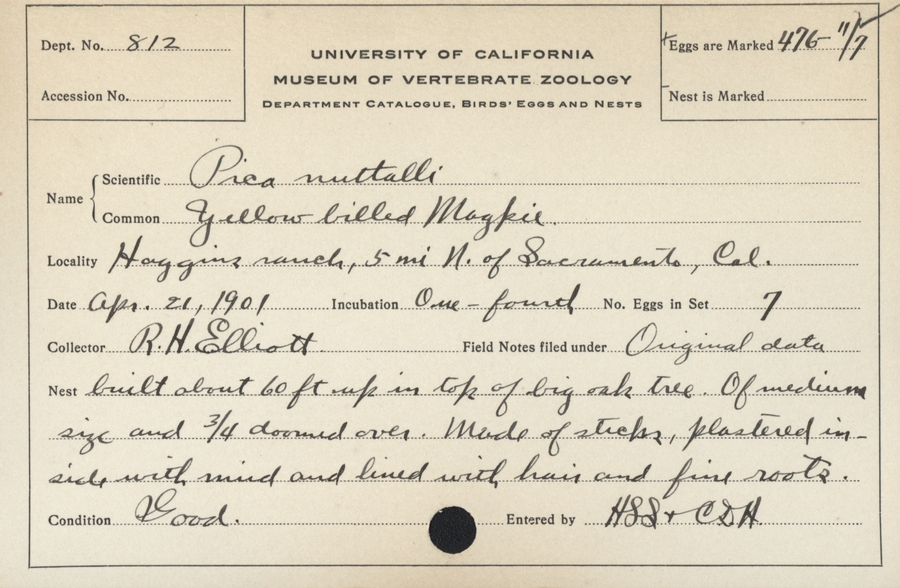 Dept. No. 812
UNIVERSITY OF CALIFORNIA
MUSEUM OF VERTEBRATE ZOOLOGY
DEPARTMENT CATALOGUE, BIRDS' EGGS AND NESTS
Accession No.
Eggs are Marked 476 11/7
Nest is Marked
Name
Scientific Pica nuttalli
Common Yellow billed Magpie.
Locality Haggins ranch, 5 mi N. of Sacramento, Cal.
Date Apr. 21, 1901 Incubation One-fourth No. Eggs in Set 7
Collector R.H. Elliott Field Notes filed under Original data
Nest built about 60 ft up in top of big oak tree. Of medium
size and 3/4 doomed over. Made of sticks, plastered in-
side with mud and lined with hair and fine roots.
Condition Good. Entered by HSS + CDH.